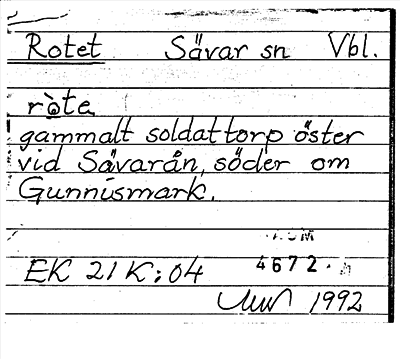 Rotet Sävar sn Vbl.
ròte
gammalt soldattorp öster
vid Sävarån, söder om
Gunnismark.
EK 21K:04 4672
1992